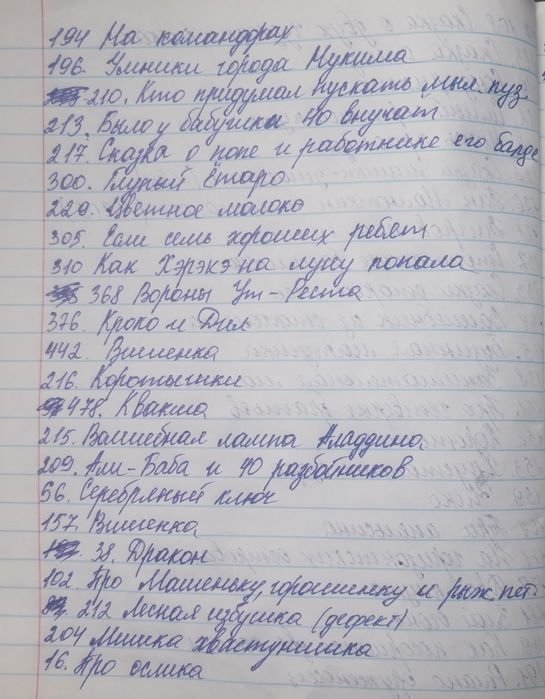 194 На командорах
196. Умники города Мукима
210. Кто придумал пускать мыл. пуз.
213. Было у бабушки 40 внучат
217. Сказка о попе и работнике его Балде
300. Глупый Ётаро
220. Цветное молоко
305. Если семь хороших ребят
310 Как Хэрэкэ на луну попала
368 Вороны Ут-Реста
376. Кроко и Дил
442. Вишенка
216. Коротышки
478. Квакша
215. Волшебная лампа Аладдина
209. Али-Баба и 40 разбойников
56. Серебряный ключ
157. Вишенка
38. Дракон
102. Про Машеньку, горошинку и рыж. пет
212 Лесная избушка (дефект)
204 Мишка хвастунишка
16. Про ослика